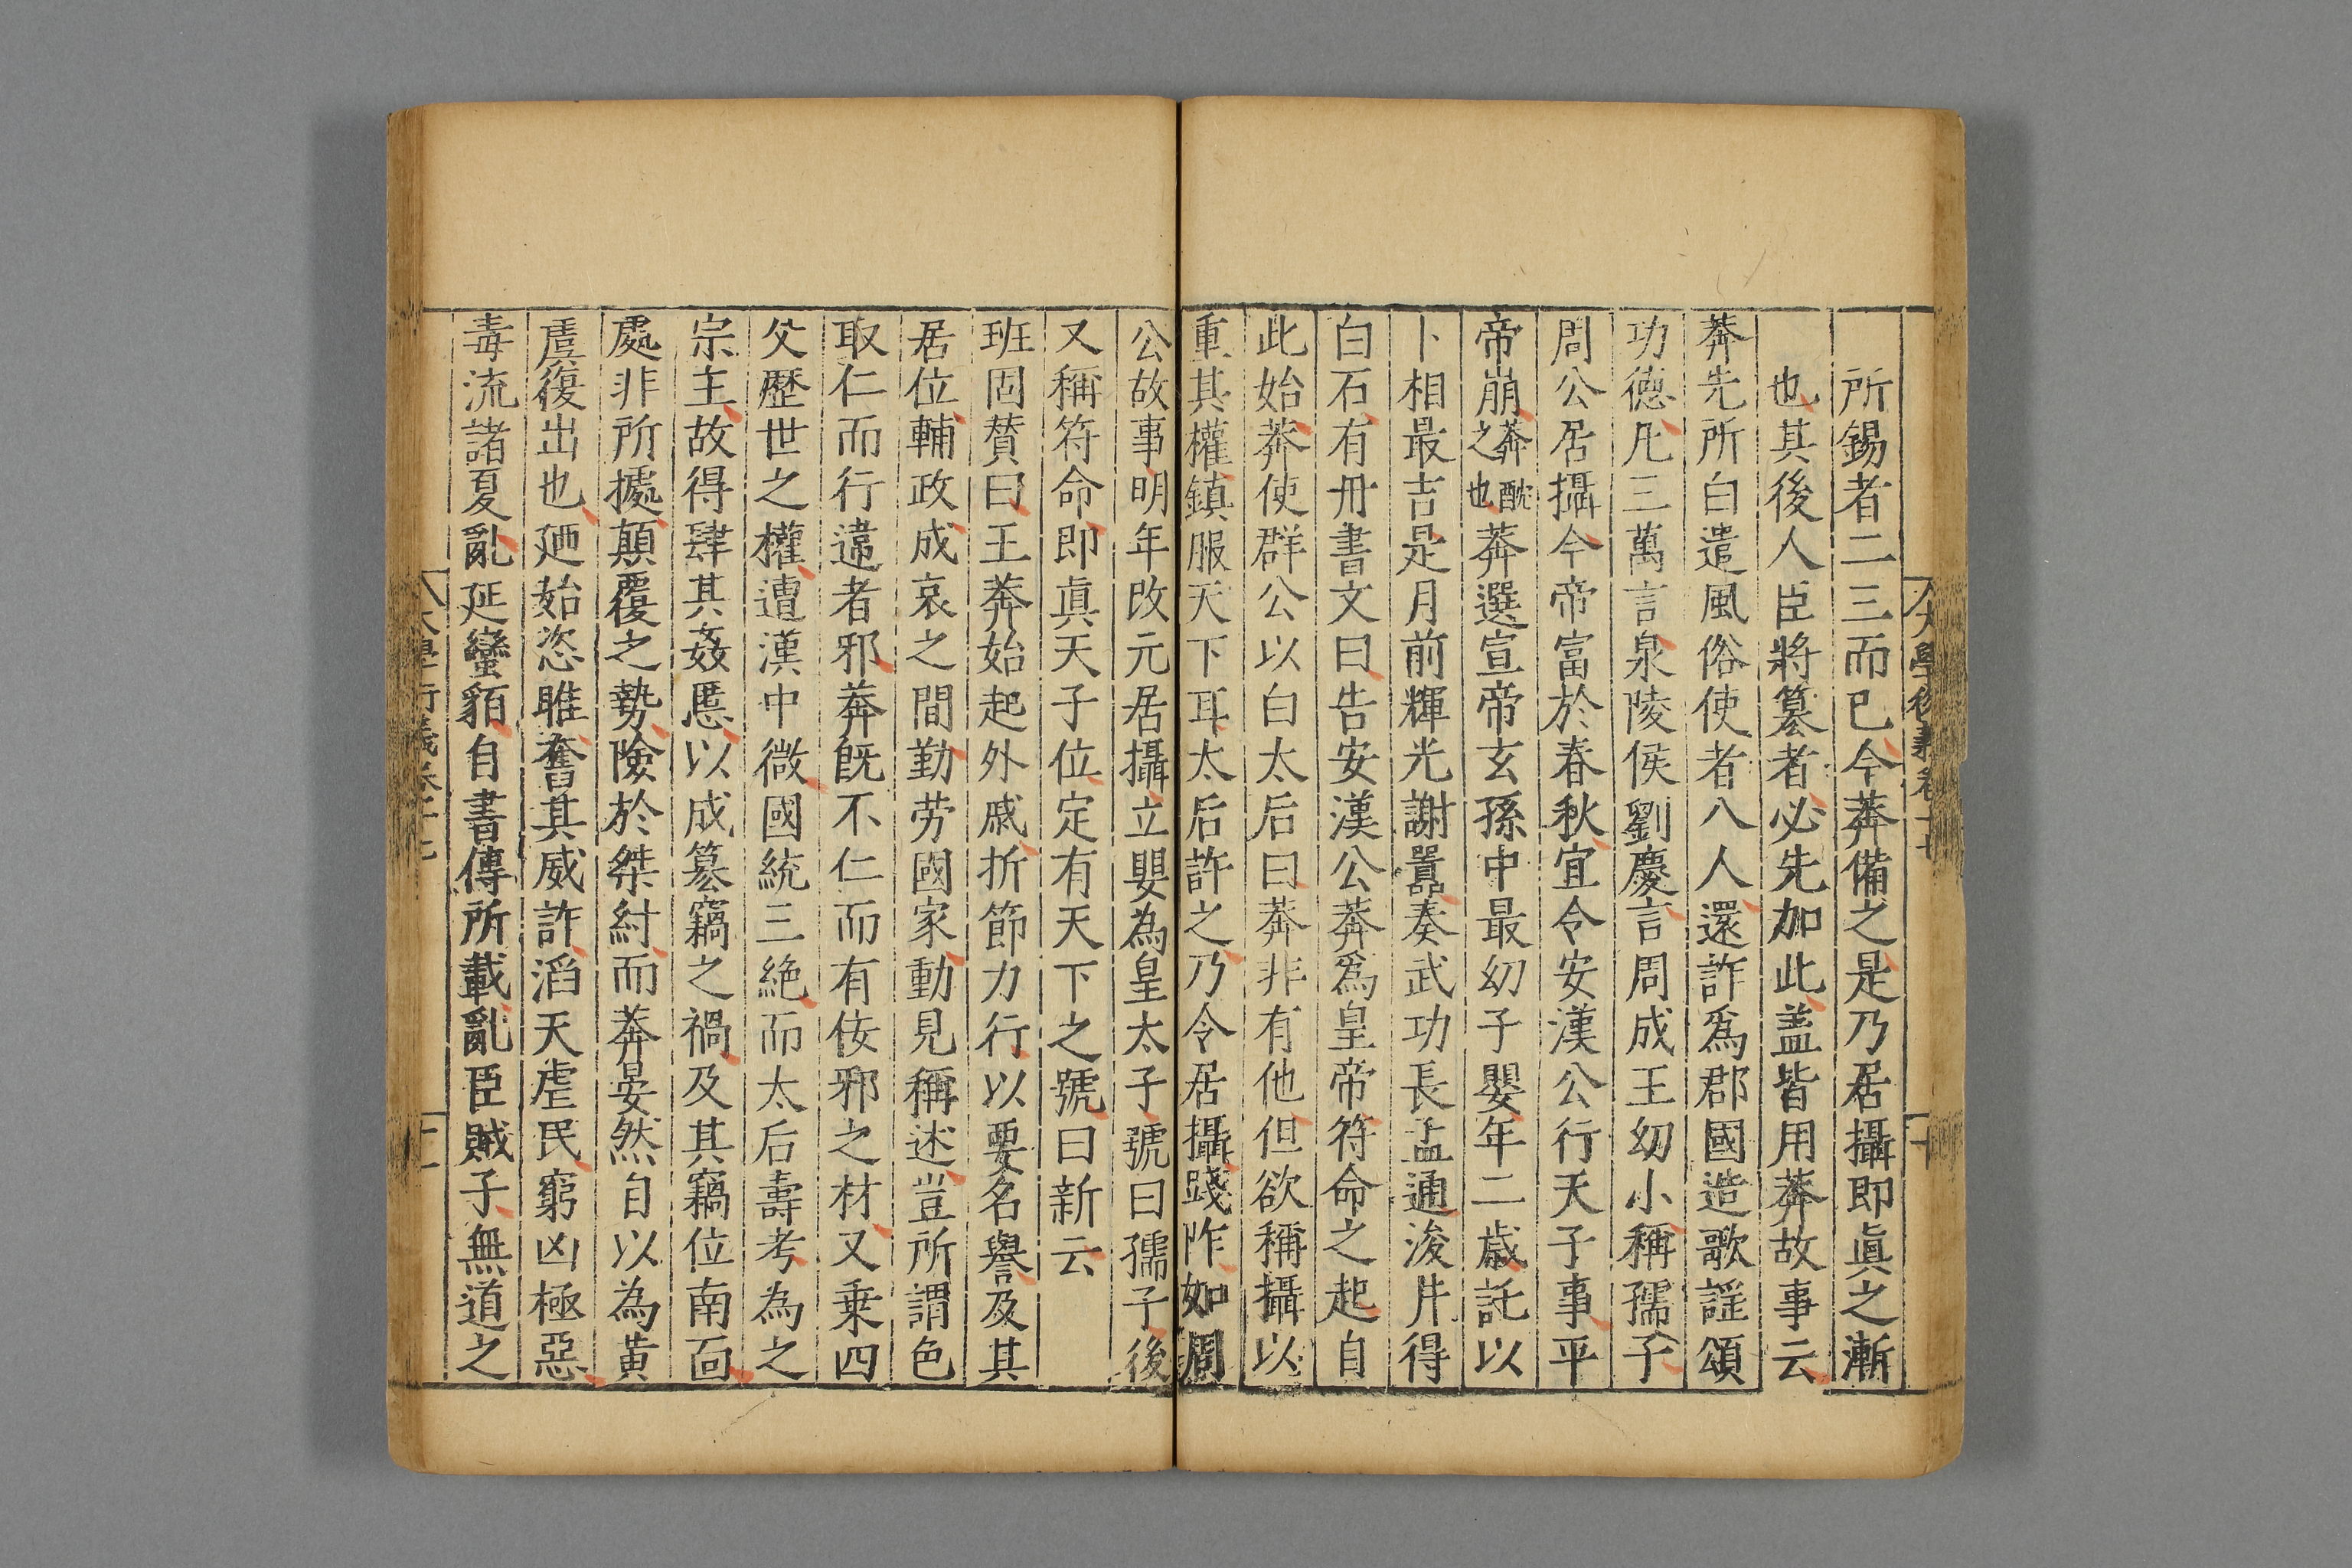 大學衍義卷十七
十
所錫者二三而已今莽備之是乃居攝即眞之漸
也其後人臣將簒者必先加此盖皆用莽故事云
莽先所白遣風俗使者八人還詐爲郡國造歌謡頌
功德凡三萬言泉陵侯劉慶言周成王幼小稱孺子
周公居攝今帝富於春秋宜令安漢公行天子事平
帝崩莽酖之也莽選宣帝玄孫中最幼子嬰年二歳託以
卜相最吉是月前輝光謝囂奏武功長孟通浚井得
白石有丹書文曰告安漢公莽爲皇帝符命之起自
此始莽使群公以白太后曰莽非有他但欲稱攝以
重其權鎮服天下耳太后許之乃令居攝踐阼如周
公故事明年改元居攝立嬰為皇太子號曰孺子後
又稱符命即眞天子位定有天下之號曰新云
班固賛曰王莽始起外戚折節力行以要名譽及其
居位輔政成哀之間勤劳國家動見稱述豈所謂色
取仁而行違者邪莽既不仁而有佞邪之材又乗四
父歷世之權遭漢中微國統三絶而太后壽考為之
宗主故得肆其姦慝以成簒竊之禍及其竊位南面
處非所據顛覆之勢險於桀紂而莽晏然自以為黄
虞復出也廼始恣睢奮其威詐滔天虐民窮凶極惡
毒流諸夏亂延蠻貊自書傳所載亂臣賊子無道之
大學衍義卷十七
十一